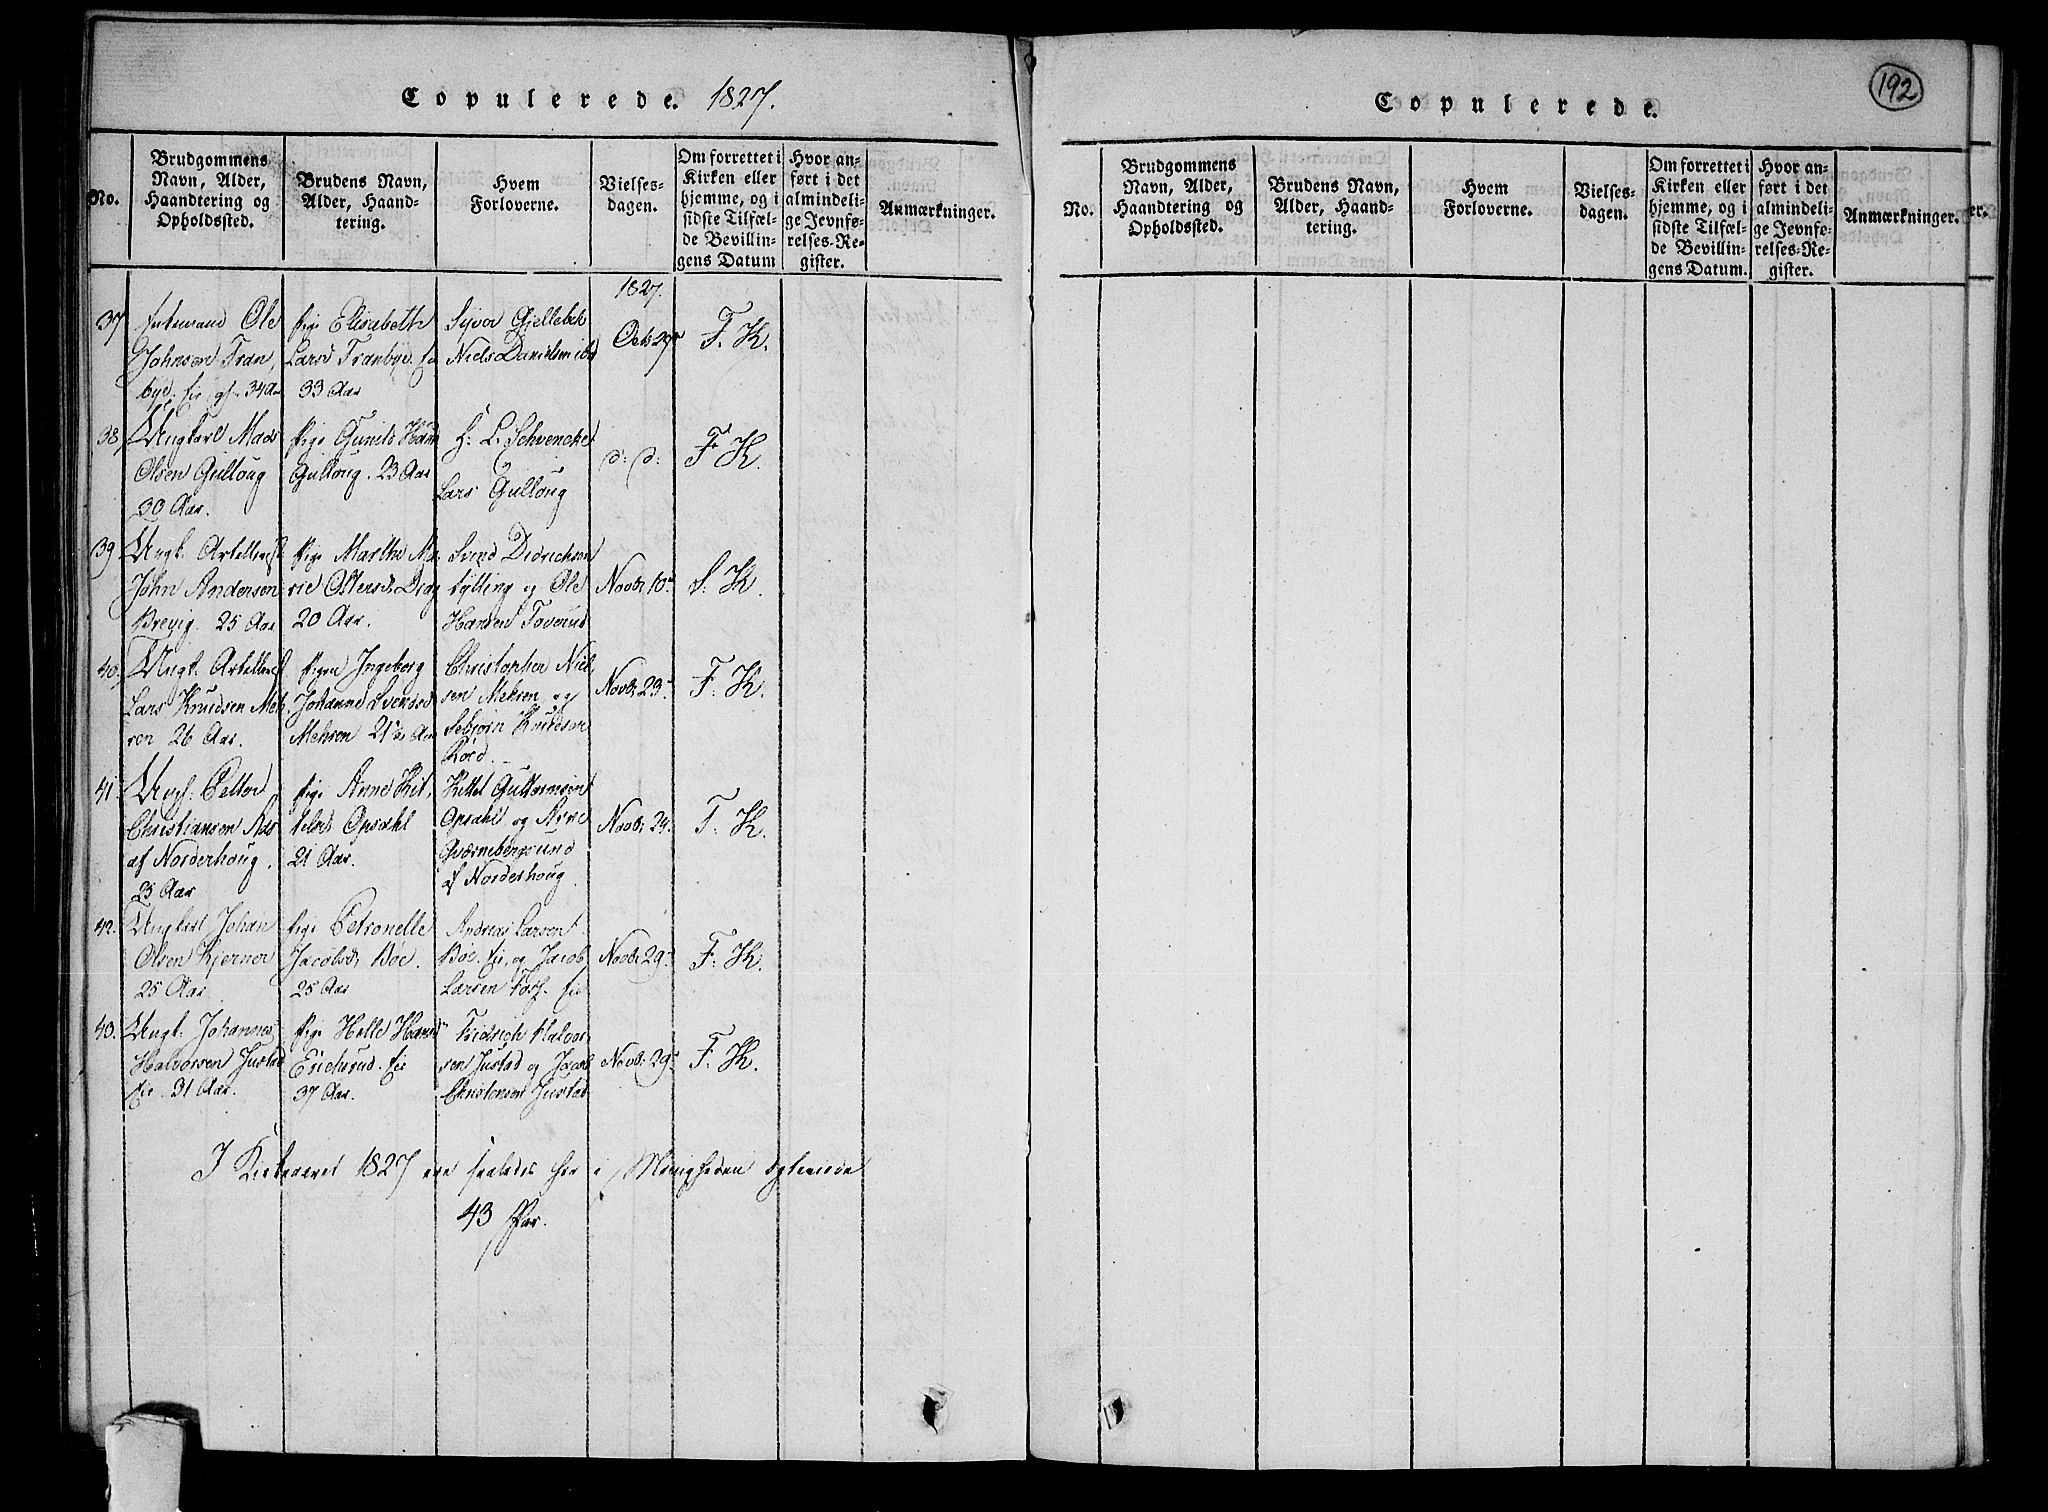 Copulerede. 1827.
No.
Brudgommens
Navn, Alder,
Haandtering og
Opholdssted.
Brudens Navn,
Alder, Haand-
tering.
Hvem
Forloverne.
Vielses-
dagen.
Om forrettet i
Kirken eller
hjemme, og i
sidste Tilfæl-
de Bevillin-
gens Datum
Hvor an-
ført i det
almindeli-
ge Jevnfø-
relses-Re-
gister.
Anmærkninger.
1827.
37
Enkemand Ole
Johnsen Tran,
bye. Eie 34 Aar
Pige Elisabeth
Larsd Tranbye. Eie
33 Aar
Syver Gjellebek
Niels Danielsen ibd
Octb 29
F. K.
38
Ungkarl Mads
Olsen Gulloug
30 Aar.
Pige Gunild Hansd
Gulloug. 23 Aar
H: L. Schvencke
Lars Gulloug
d: d:
F. K.
39
Ungk. Artellerist
John Andersen
Breyig. 25 Aar
Pige Marthe Ma,
rie Olersd Diag
20 Aar.
Svend Didrichsen
Sylling og Ole
Hansen Toverud
Novbr 10
S. K.
40.
Ungk. Artellerist
Lars Knudsen Meh
ren 26 Aar.
Pigen Ingeborg
Johanne Svendsd
Mehren 21 Aar
Christopher Niel,
sen Mehren og
Sebjørn Knudsen
Røed.
Novbr 23
F. K.
41.
Ungk: Petter
Christiansen Aas
af Norderhoug.
25 Aar
Pige Anne Kit,
telsd Opsahl
21 Aar.
Kittel Guttormsen
Opsahl og Arne
Qværnbergsund
af Norderhoug.
Novbr 24.
F. K.
42.
Ungkarl Johan
Olsen Kjerner
25 Aar
Pige Petronelle
Jacobsd Böe.
25 Aar
Andreas Larsen
Böe. Eie, og Jacob
Larsen Foss. Eie
Novbr 29
F. K.
43.
Ungk. Johannes
Halvorsen Justad
Eie. 31 Aar.
Pige Helle Hansd
Ericksrud. Eie
37 Aar.
Fridrich Halvor,
sen Justad og Jacob
Christensen Justad
Novbr 29
F. K.
I Kirkeaaret 1827 ere saaledes her i Menigheden egteviede
43 Par.
192
Copulerede.
No.
Brudgommens
Navn, Alder,
Haandtering og
Opholdssted.
Brudens Navn,
Alder, Haand-
tering.
Hvem
Forloverne.
Vielses-
dagen.
Om forrettet i
Kirken eller
hjemme, og i
sidste Tilfæl-
de Bevillin-
gens Datum.
Hvor an-
ført i det
almindeli-
ge Jevnfø-
relses-Re-
gister.
Anmærkninger.